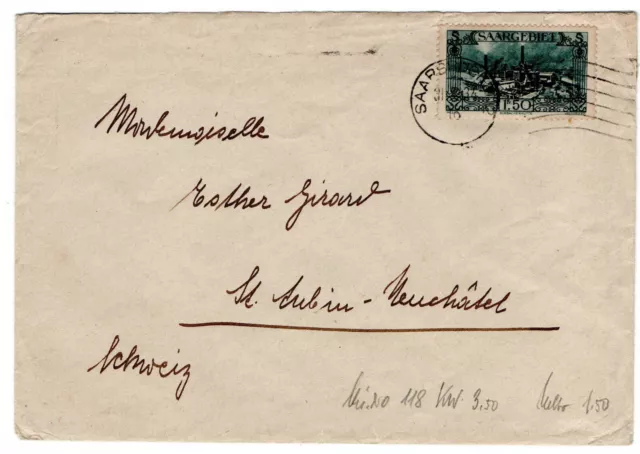 SAARGEBIET
1.50
SAARB
16
Mademoiselle
Esther Girard
St. Aubin - Neuchâtel
Schweiz
Mi.No 118 KW. 3,50 1.50